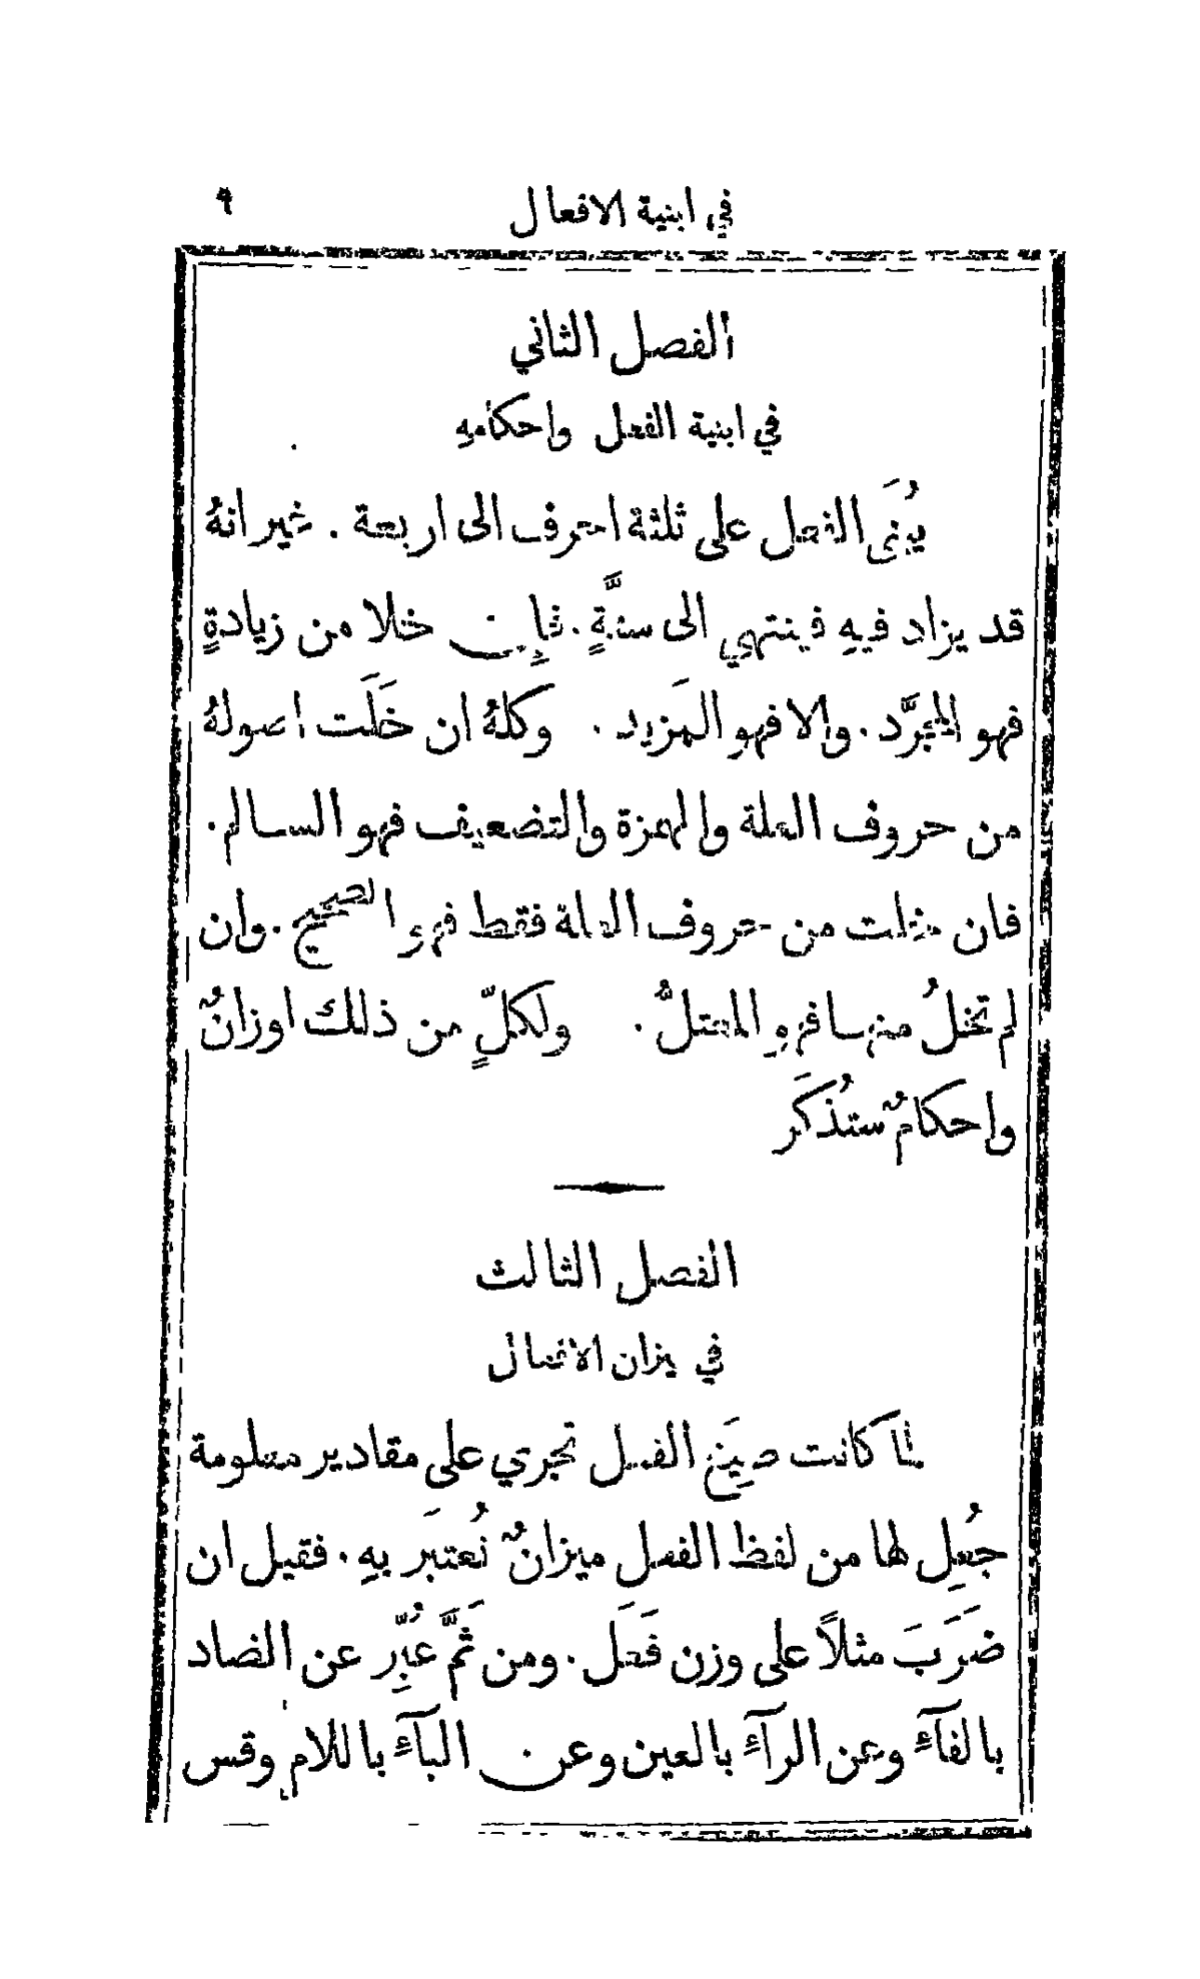 في ابنية الافعال ٩
الفصل الثاني
في ابنية الفعل واحكامهِ
يُبنَى الفعل على ثلثة احرف الى اربعة . غير انهُ
قد يزاد فيهِ فينتهي الى ستَّةٍ . فإِن خلا من زيادةٍ
فهو المجرَّد . والا فهو المَزيد . وكلهُ ان خَلَت اصولهُ
من حروف العلة والهمزة والتضعيف فهو السالم .
فان خلت من حروف العلة فقط فهو الصحيح . وان
لم تخلُ منها فهو المعتلُّ . ولكلٍّ من ذلك اوزانٌ
واحكامٌ ستُذكَر
الفصل الثالث
في يزان الافعال
لما كانت صِيَغ الفعل تجري على مقادير معلومة
جُعِل لها من لفظ الفعل ميزانٌ تُعتبَر بهِ . فقيل ان
ضَرَبَ مثلاً على وزن فَعَل . ومن ثَمَّ عُبِّر عن الضاد
بالفآءِ وعن الرآءِ بالعين وعن البآءِ باللام وقس